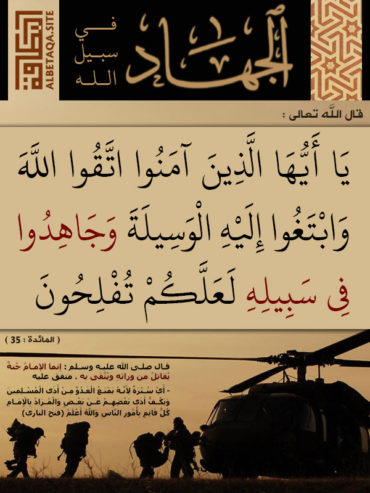 الجهاد
في
سبيل
الله
البطاقة
ALBETAQA.SITE
قال اللَّه تعالى :
يَا أَيُّهَا الَّذِينَ آمَنُوا اتَّقُوا اللَّهَ
وَابْتَغُوا إِلَيْهِ الْوَسِيلَةَ وَجَاهِدُوا
فِي سَبِيلِهِ لَعَلَّكُمْ تُفْلِحُونَ
( المائدة : 35 )
قال صلى الله عليه وسلم : إنما الإمامُ جُنةٌ
يُقاتَلُ من ورائِهِ ويُتَّقَى به . متفق عليه
- أَيْ سُتْرَةٌ لِأَنَّهُ يَمْنَعُ الْعَدُوَّ مِنْ أَذَى الْمُسْلِمِينَ
وَيَكُفُّ أَذَى بَعْضِهِمْ عَنْ بَعْضٍ وَالْمُرَادُ بِالْإِمَامِ
كُلُّ قَائِمٍ بِأُمُورِ النَّاسِ وَاللَّهُ أَعْلَمُ (فتح الباري)